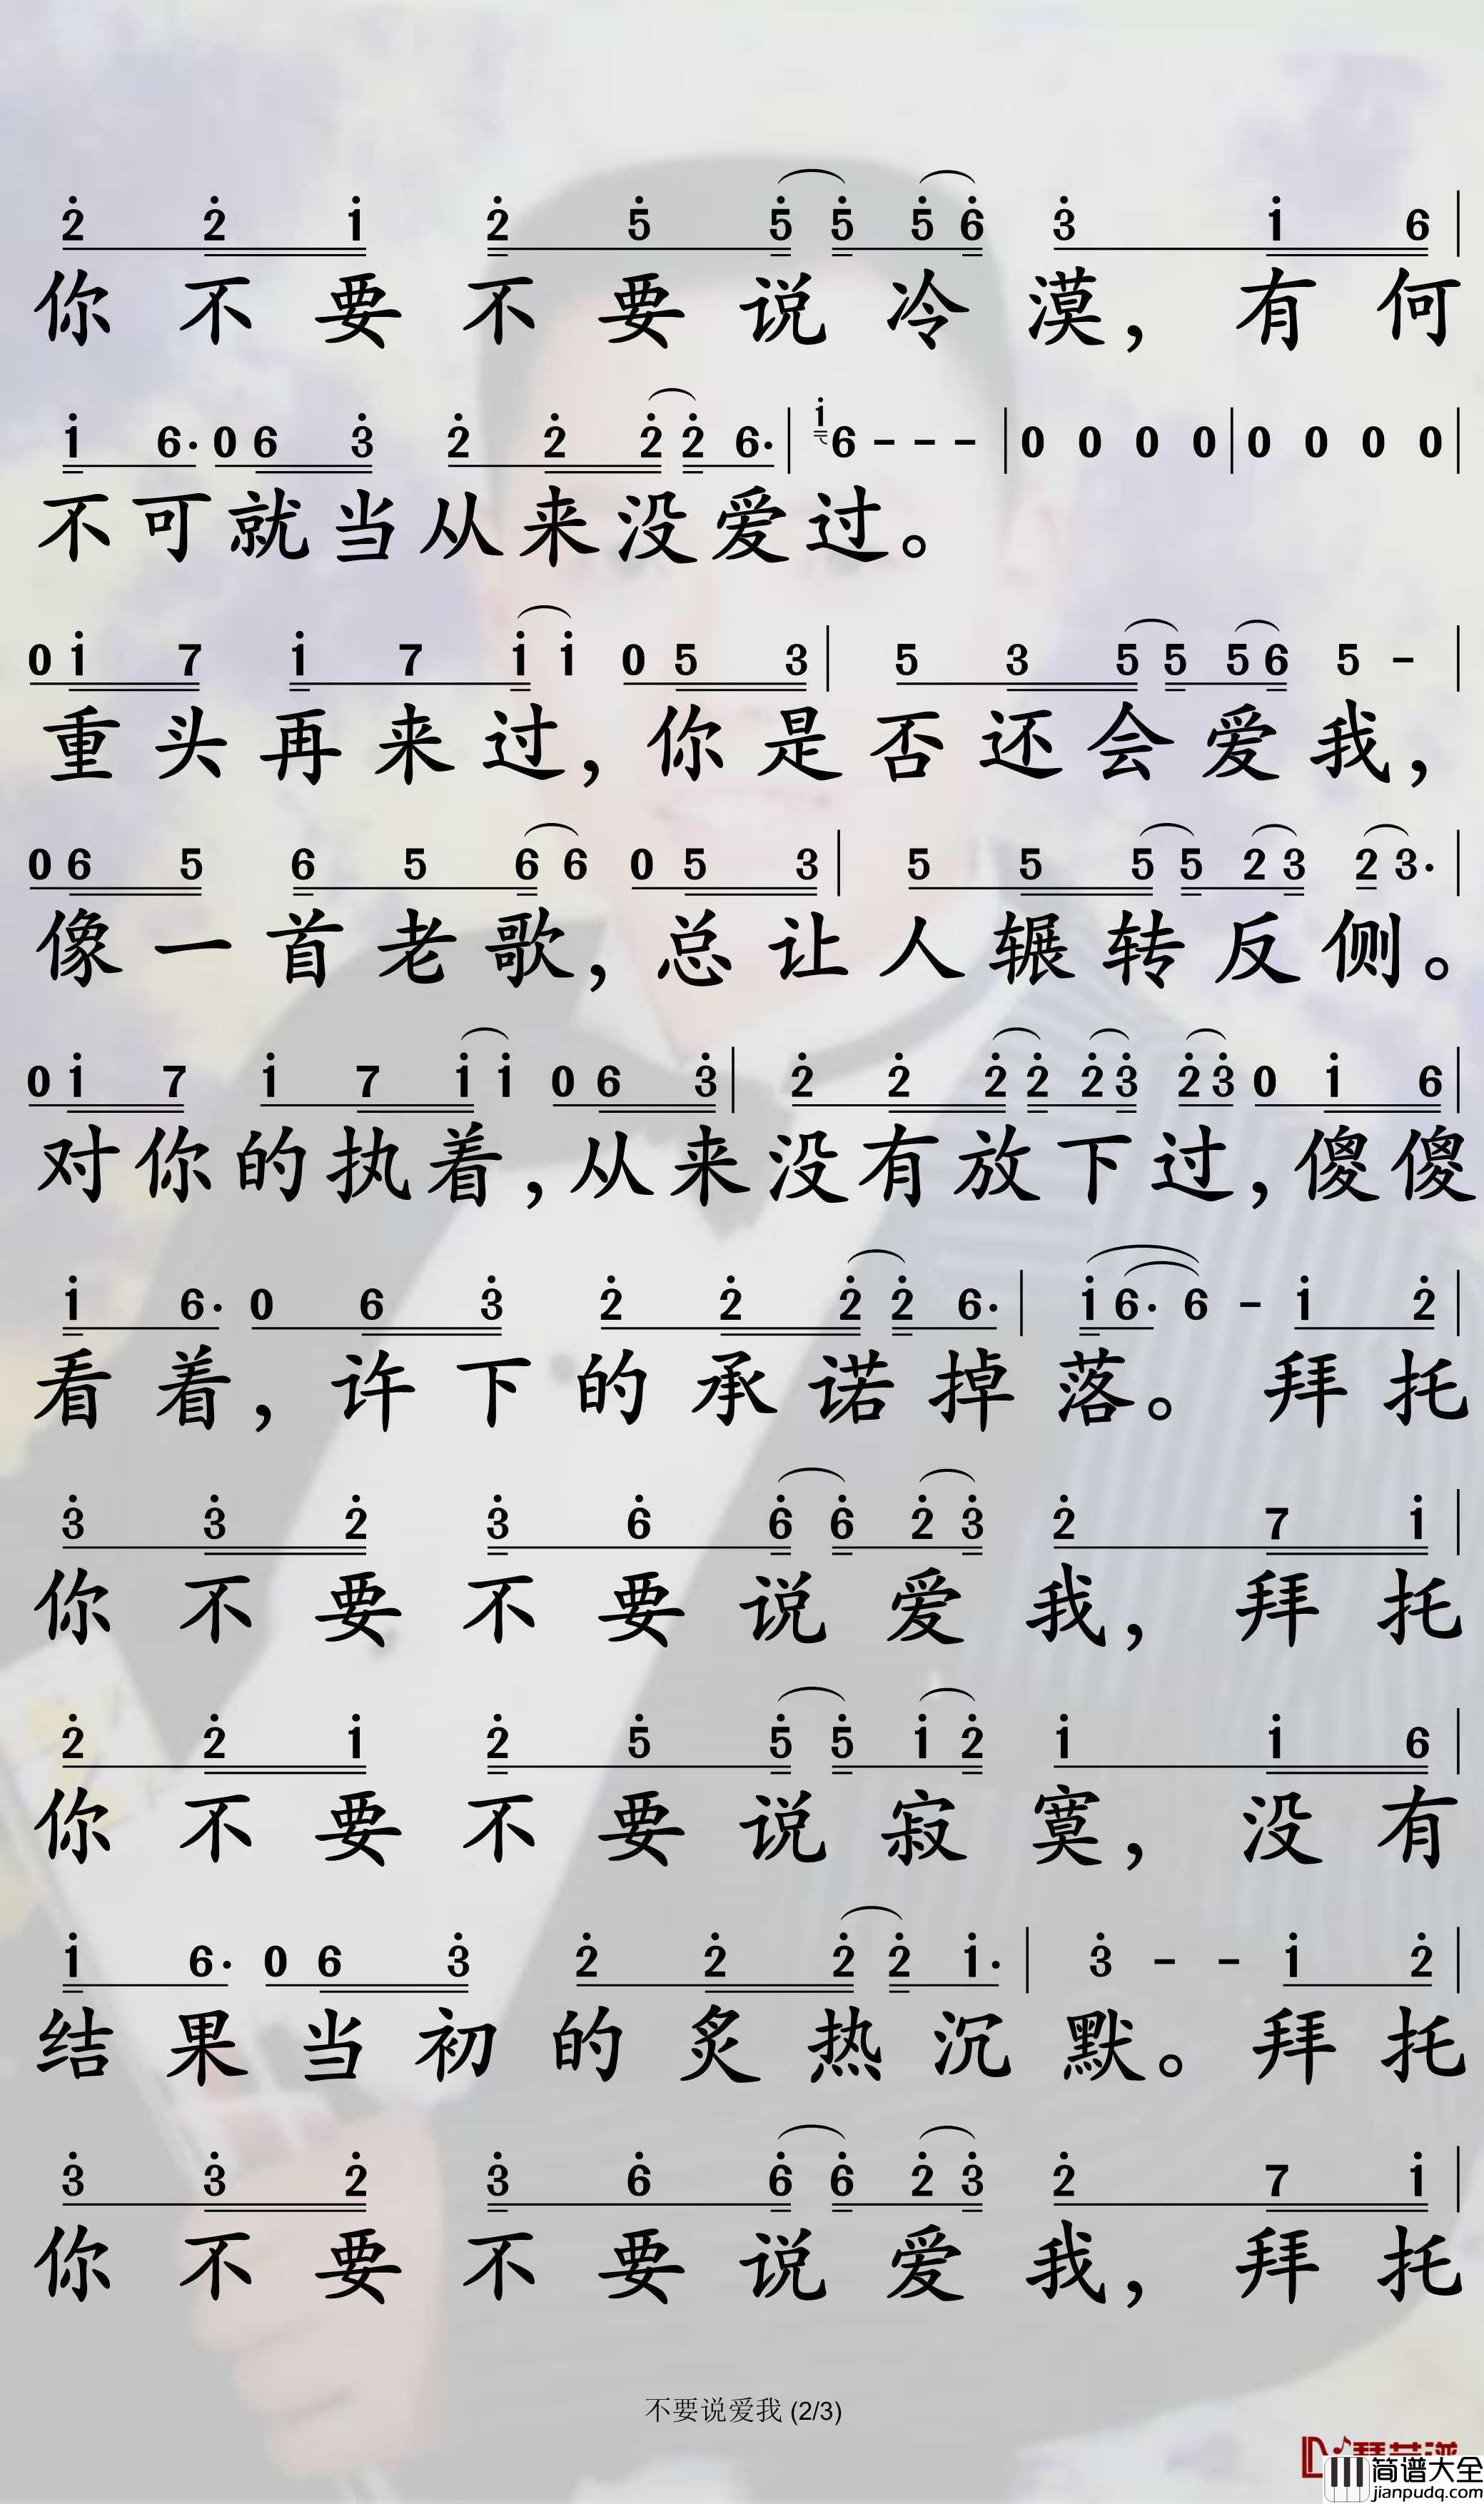 2 2 1 2 5 5 5 5 6 3 1 6 |
你不要不要说冷漠，有何
1 6. 0 6 3 2 2 2 2 6. | 1 6 - - - | 0 0 0 0 | 0 0 0 0 |
不可就当从来没爱过。
0 1 7 1 7 1 1 0 5 3 | 5 3 5 5 5 6 5 - |
重头再来过，你是否还会爱我，
0 6 5 6 5 6 6 0 5 3 | 5 5 5 5 2 3 2 3. |
像一首老歌，总让人辗转反侧。
0 1 7 1 7 1 1 0 6 3 | 2 2 2 2 2 3 2 3 0 1 6 |
对你的执着，从来没有放下过，傻傻
1 6. 0 6 3 2 2 2 2 6. | 1 6. 6 - 1 2 |
看着，许下的承诺掉落。拜托
3 3 2 3 6 6 6 2 3 2 7 1 |
你不要不要说爱我，拜托
2 2 1 2 5 5 5 1 2 1 1 6 |
你不要不要说寂寞，没有
1 6. 0 6 3 2 2 2 2 1. | 3 - - 1 2 |
结果当初的炙热沉默。拜托
3 3 2 3 6 6 6 2 3 2 7 1 |
你不要不要说爱我，拜托
不要说爱我 (2/3)
简谱大全
jianpudq.com